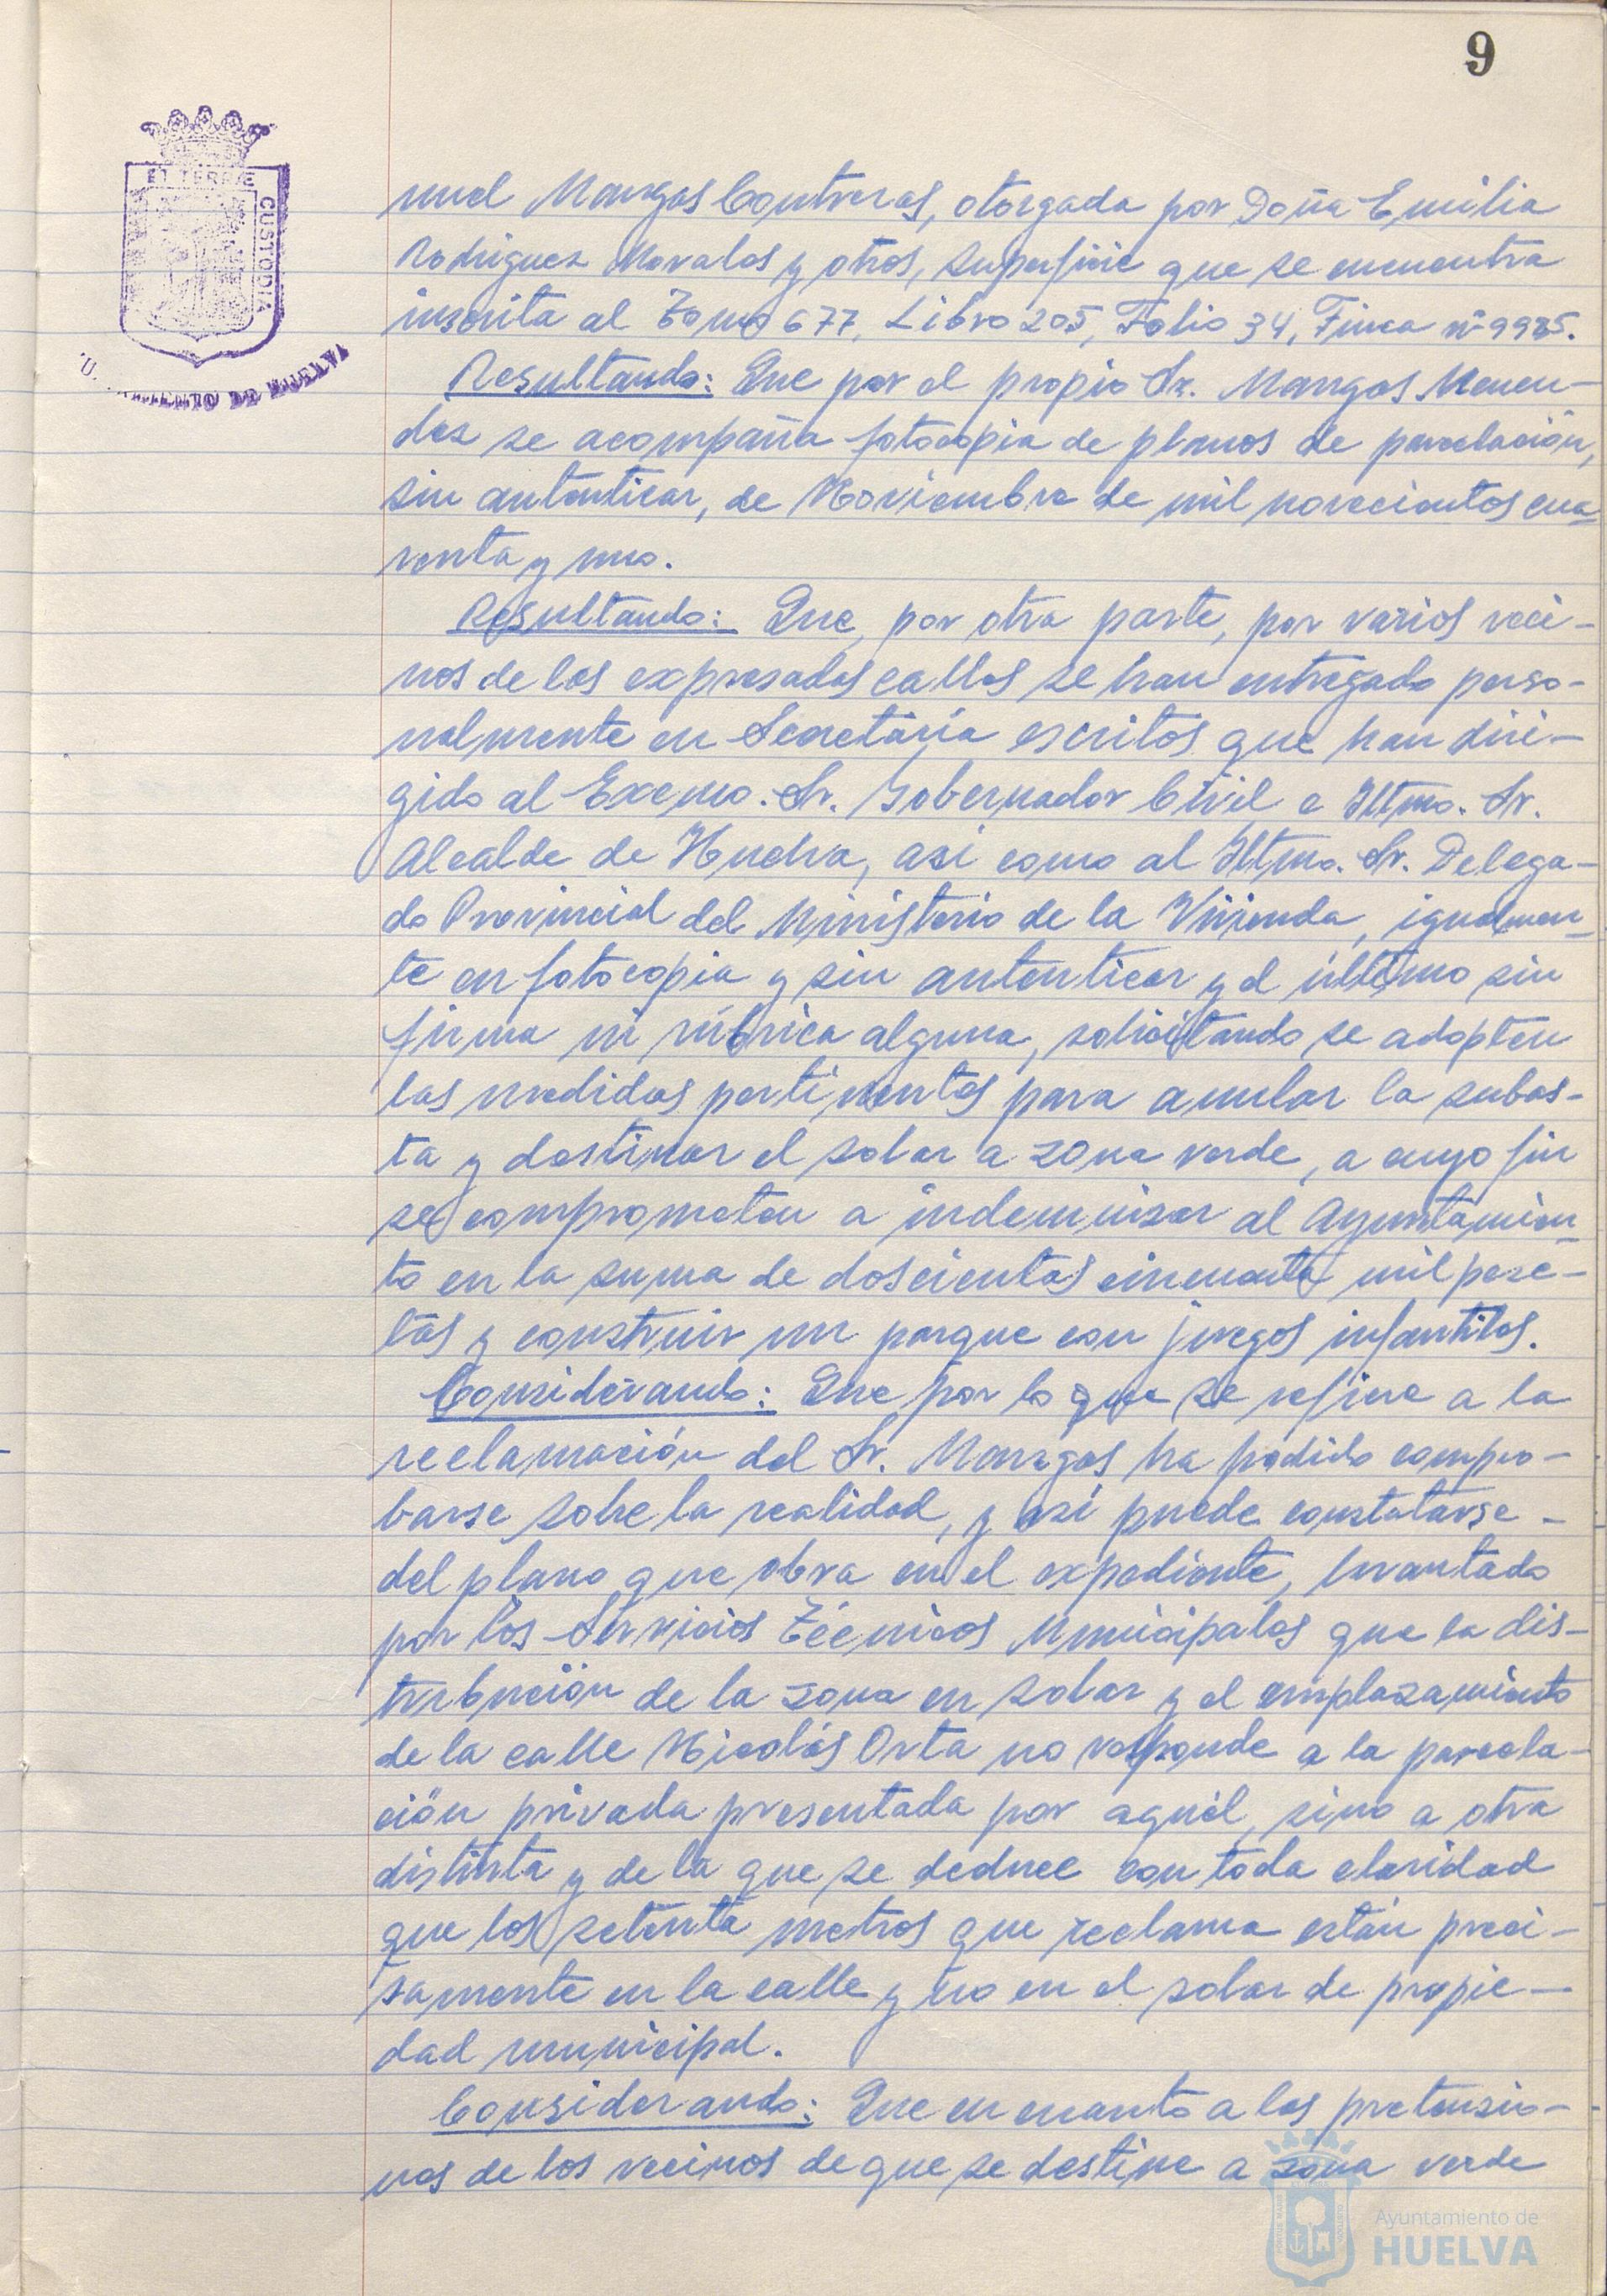 9
ET TERRÆ
CUSTODIA
AYUNTAMIENTO DE HUELVA
nuel Mangas Contreras, otorgada por Doña Emilia
Rodriguez Morales y otros, superficie que se encuentra
inscrita al Tomo 677, Libro 205, Folio 34, Finca nº 9985.
Resultando: Que por el propio Sr. Mangas Menen-
dez se acompaña fotocopia de planos de parcelación,
sin autenticar, de Noviembre de mil novecientos cua-
renta y uno.
Resultando: Que, por otra parte, por varios veci-
nos de las expresadas calles se han entregado perso-
nalmente en Secretaría escritos que han diri-
gido al Excmo. Sr. Gobernador Civil e Iltmo. Sr.
Alcalde de Huelva, asi como al Iltmo. Sr. Delega-
do Provincial del Ministerio de la Vivienda, igualmen-
te en fotocopia y sin autenticar y el último sin
firma ni rúbrica alguna, solicitando se adopten
las medidas pertinentes para anular la subas-
ta y destinar el solar a zona verde, a cuyo fin
se comprometen a indemnizar al Ayuntamien-
to en la suma de doscientas cincuenta mil pese-
tas y construir un parque con juegos infantiles.
Considerando: Que por lo que se refiere a la
reclamación del Sr. Mangas ha podido compro-
barse sobre la realidad, y asi puede constatarse -
del plano que obra en el expediente, levantado
por los Servicios Técnicos Municipales que la dis-
tribución de la zona en solar y el emplazamiento
de la calle Nicolás Orta no responde a la parcela-
ción privada presentada por aquél, sino a otra
distinta y de la que se deduce con toda claridad
que los setenta metros que reclama están preci-
samente en la calle y no en el solar de propie-
dad municipal.
Considerando: Que en cuanto a las pretensio-
nes de los vecinos de que se destine a zona verde
Ayuntamiento de
HUELVA